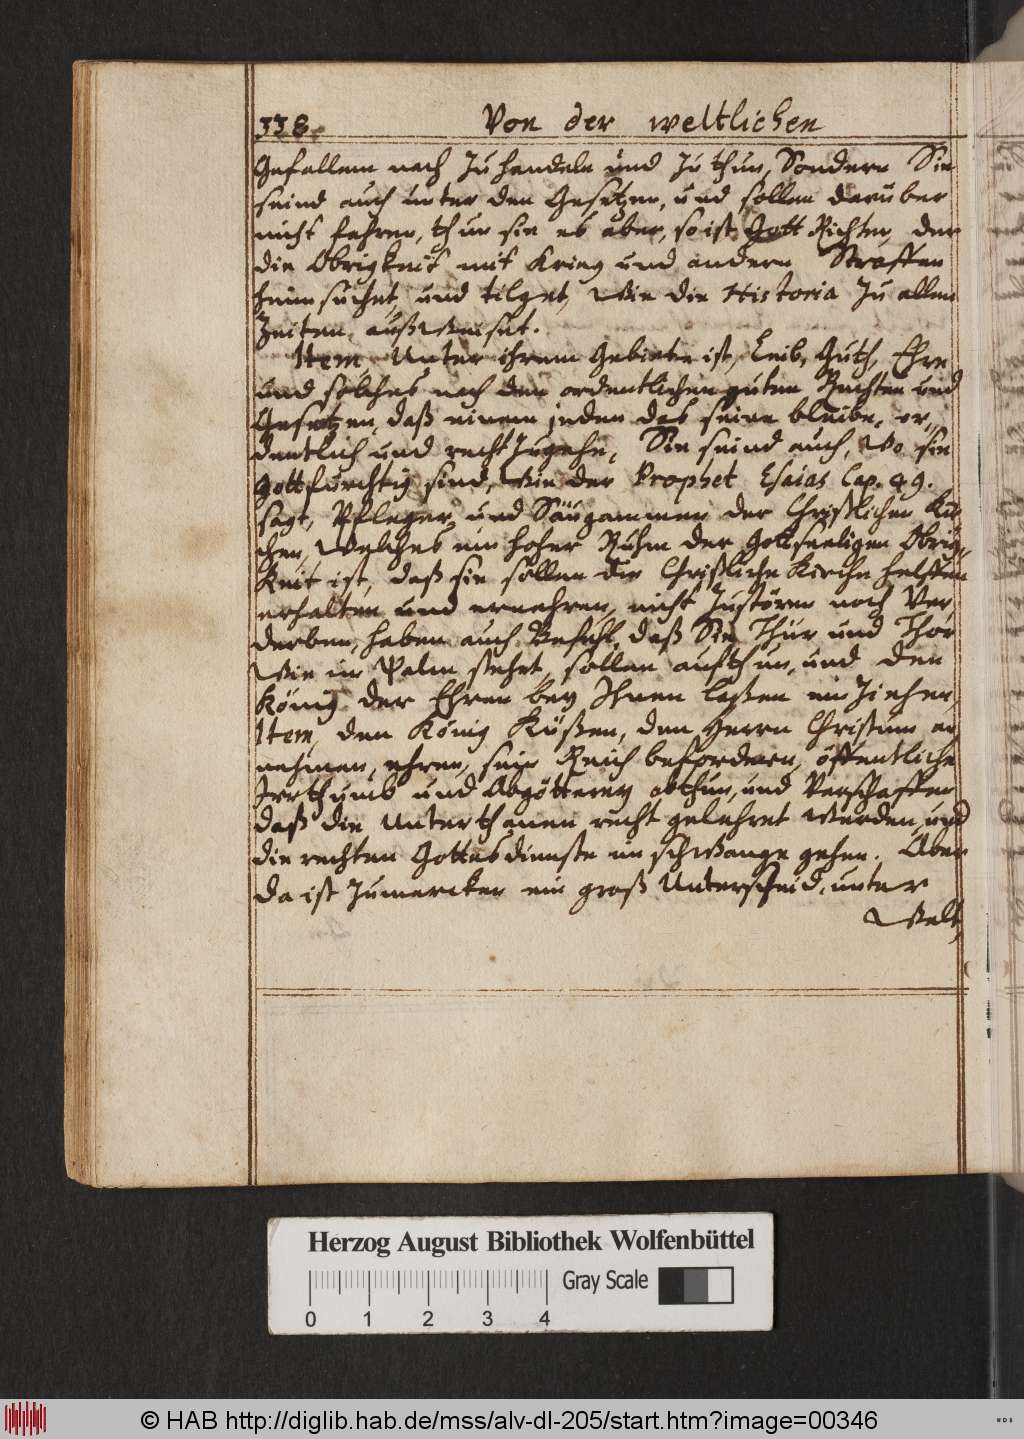 338. Von der weltlichen
Gefallenn nach Zu handeln und Zu thun, Sondern Sie
seind auch unter den Gesetzen, und sollen darüber
nicht fahren, thun sie es aber, so ist Gott Richter, der
die Obrigkeit mit Krieg und andern Straffen
heimsuchet, und tilget, Wie die Historia Zu allen
Zeiten außweiset.
Item, Unter ihrem Gebiete ist, Leib, Guth, Ehre
und solches nach den ordentlichen guten Rechten und
Gesetzen, daß einem jeden das seine bleibe, or,
dentlich und recht Zugehe, Sie seind auch, Wo sie
Gottfürchtig sind, Wie der Prophet Esaias Cap. 49.
sagt, Pfleger und Säügammen der Christlichen Kir
chen, Welches ein hoher Ruhm der Gottseeligen Obrig,
keit ist, daß sie sollen die Christliche Kirche helffen
erhalten und ernehren, nicht Zustören noch Ver
derben, haben auch Befehl, daß Sie Thür und Thor
Wie im Psalm stehet, sollen aufthun, und den
König der Ehren bey Ihnen laßen ein Ziehen,
Item, den König Küßen, den Herrn Christum an
nehmen, ehren, sein Reich befordern, öffentliche
Irrthumb und Abgötterey abthun, und Verschaffen
daß die Unterthanen recht gelehret Werden, und
die rechten Gottesdienste im schwange gehen. Aber
da ist Zumercken ein groß Unterscheid, unter
Welt,
Herzog August Bibliothek Wolfenbüttel
Gray Scale
0 1 2 3 4
© HAB http://diglib.hab.de/mss/alv-dl-205/start.htm?image=00346